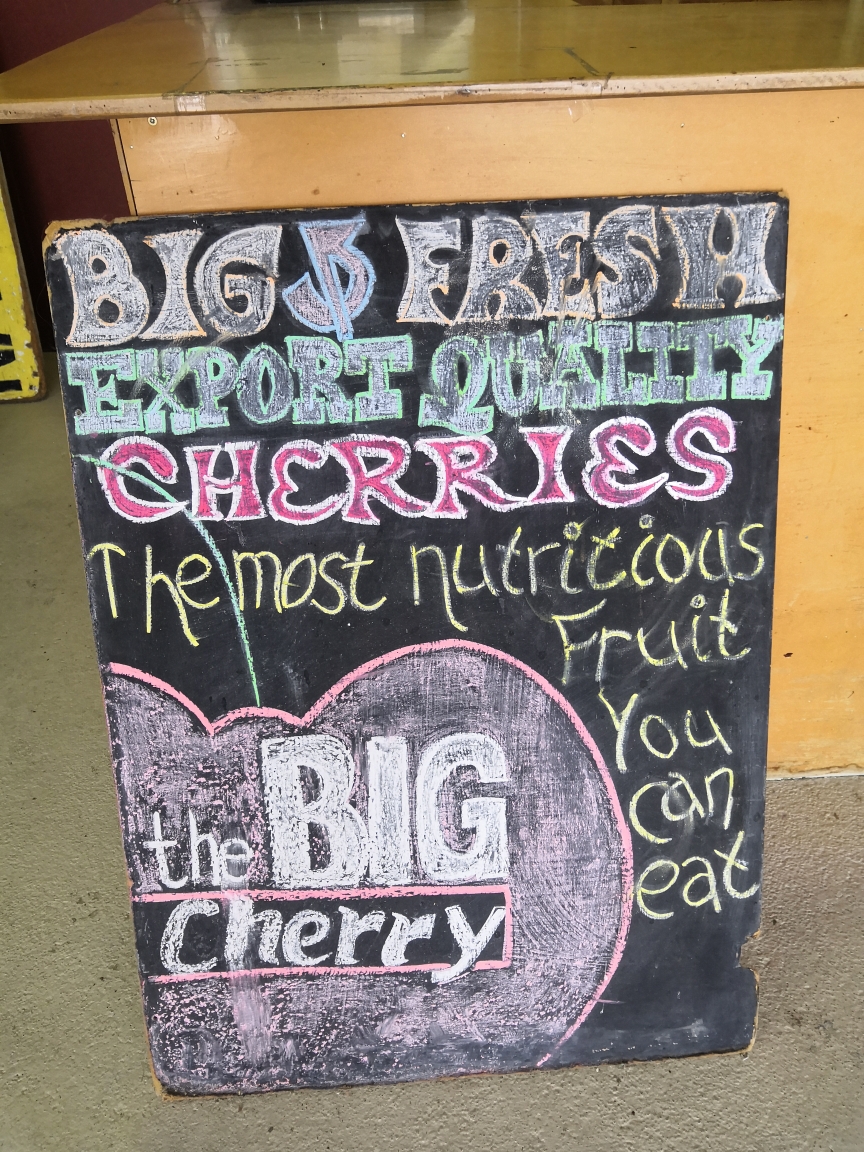 BIG & FRESH
EXPORT QUALITY
CHERRIES
The most nutritious
Fruit
You
can
eat
the BIG
Cherry